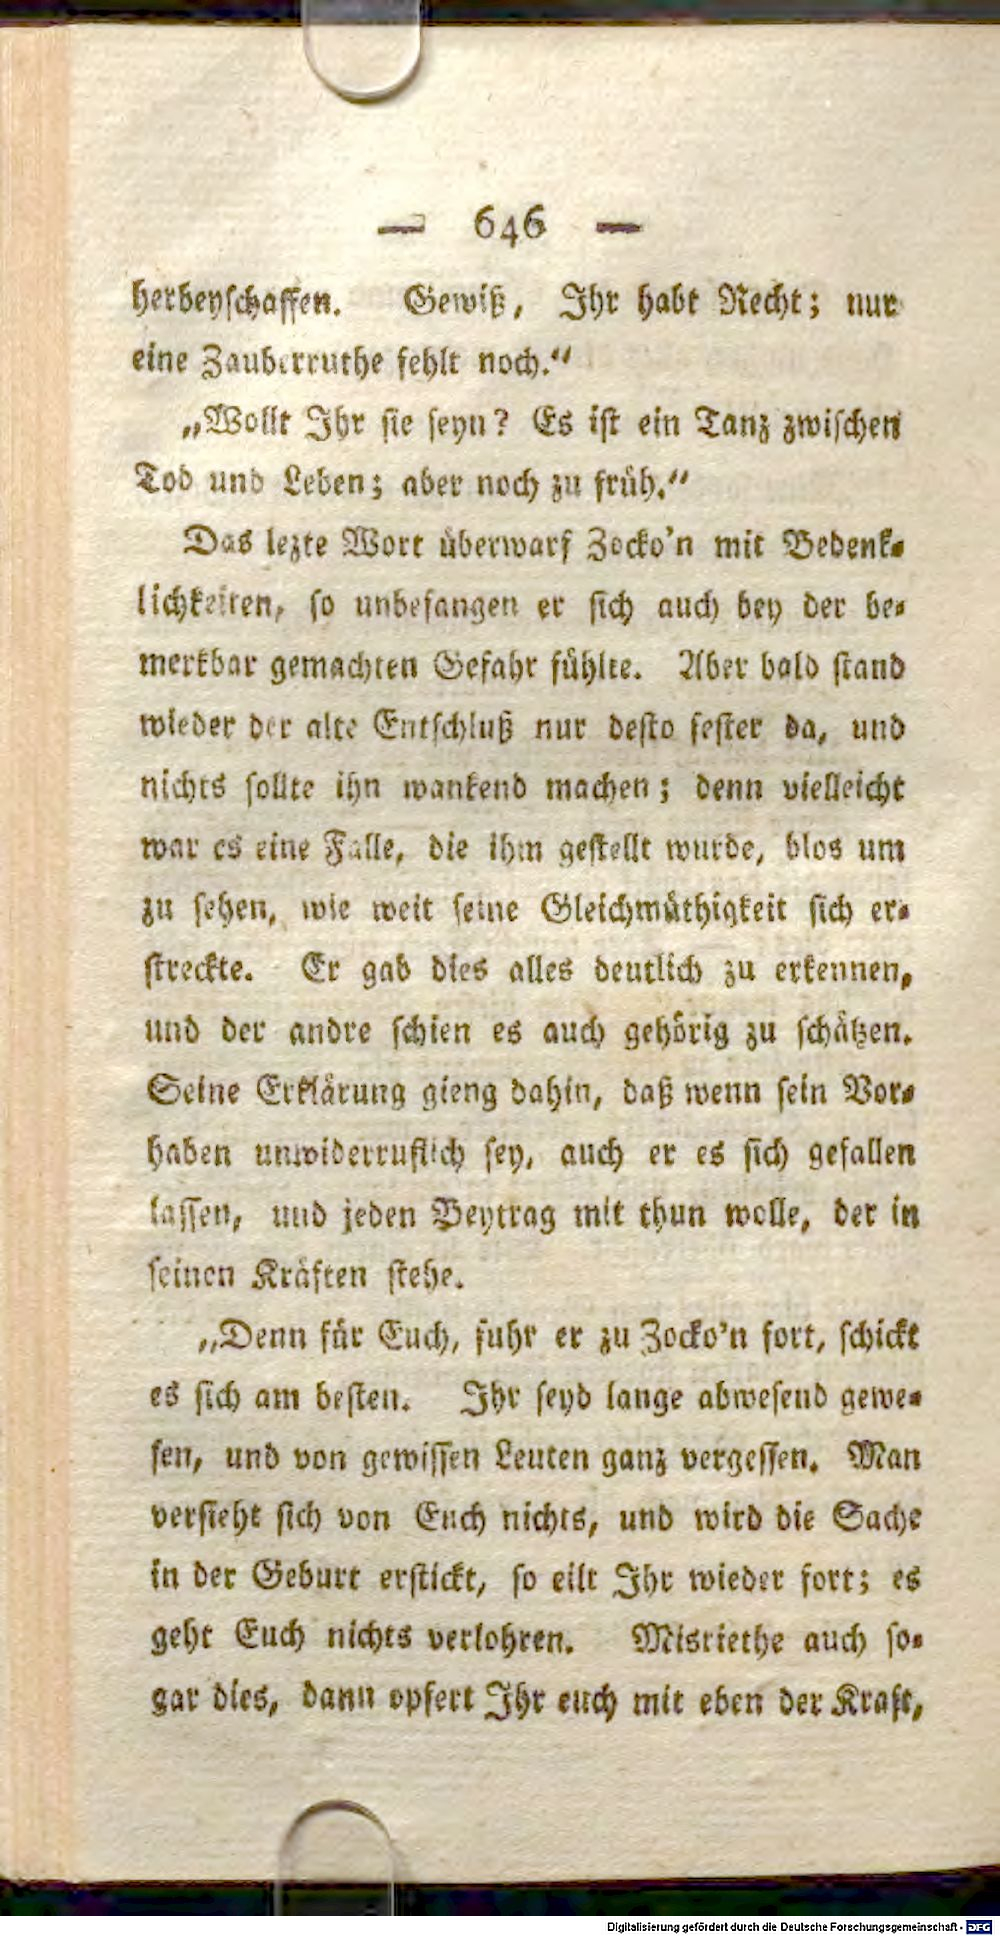 — 646 —
herbeyschaffen. Gewiß, Ihr habt Recht; nur
eine Zauberruthe fehlt noch.“
„Wollt Ihr sie seyn? Es ist ein Tanz zwischen
Tod und Leben; aber noch zu früh.“
Das lezte Wort überwarf Zocko’n mit Bedenk-
lichkeiten, so unbefangen er sich auch bey der be-
merkbar gemachten Gefahr fühlte. Aber bald stand
wieder der alte Entschluß nur desto fester da, und
nichts sollte ihn wankend machen; denn vielleicht
war es eine Falle, die ihm gestellt wurde, blos um
zu sehen, wie weit seine Gleichmüthigkeit sich er-
streckte. Er gab dies alles deutlich zu erkennen,
und der andre schien es auch gehörig zu schätzen.
Seine Erklärung gieng dahin, daß wenn sein Vor-
haben unwiderruflich sey, auch er es sich gefallen
lassen, und jeden Beytrag mit thun wolle, der in
seinen Kräften stehe.
„Denn für Euch, fuhr er zu Zocko’n fort, schickt
es sich am besten. Ihr seyd lange abwesend gewe-
sen, und von gewissen Leuten ganz vergessen. Man
versieht sich von Euch nichts, und wird die Sache
in der Geburt erstickt, so eilt Ihr wieder fort; es
geht Euch nichts verlohren. Misriethe auch so-
gar dies, dann opfert Ihr euch mit eben der Kraft,
Digitalisierung gefördert durch die Deutsche Forschungsgemeinschaft - DFG